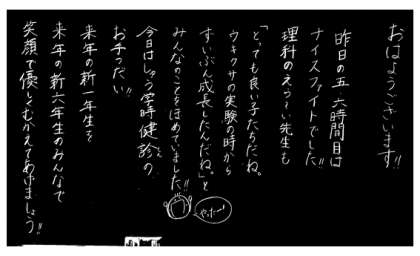 おはようございます!!
昨日の五、六時間目は
ナイスファイトでした!!
理科のえらーい先生も
「とっても良い子たちだね。
ウキクサの実験の時から
ずいぶん成長したんだね。」と
みんなのことをほめていました!!
やったー!
今日はしゅう学時健診の
お手つだい!!
来年の新一年生を
来年の新六年生のみんなで
笑顔で優しくむかえてあげましょう!!